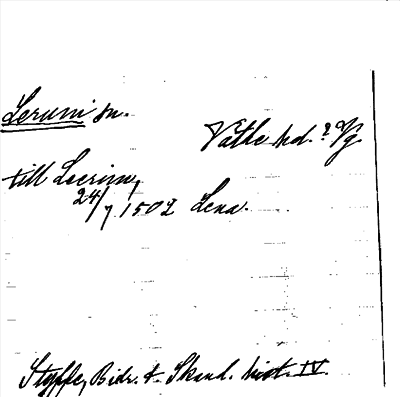 Lerum sn.
Vätle hd. ? Vg
till Leerim,
24/7 1502 Lena.
Styffe, Bidr. t. Skand. hist. IV.